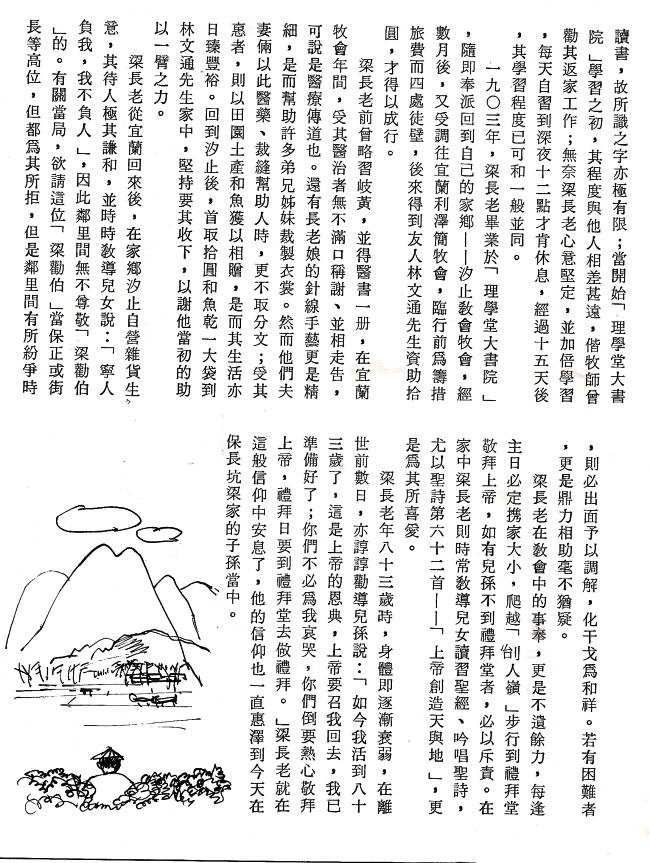 讀書，故所識之字亦極有限；當開始「理學堂大書
院」學習之初，其程度與他人相差甚遠，偕牧師曾
勸其返家工作；無奈梁長老心意堅定，並加倍學習
，每天自習到深夜十二點才肯休息，經過十五天後
，其學習程度已可和一般並同。
一九〇三年，梁長老畢業於「理學堂大書院」
，隨即奉派回到自己的家鄉——汐止教會牧會，經
數月後，又受調往宜蘭利澤簡牧會，臨行前爲籌措
旅費而四處徒壁，後來得到友人林文通先生資助拾
圓，才得以成行。
梁長老前曾略習岐黃，並得醫書一册，在宜蘭
牧會年間，受其醫治者無不滿口稱謝、並相走告，
可說是醫療傳道也。還有長老娘的針線手藝更是精
細，是而幫助許多弟兄姊妹裁製衣裳。然而他們夫
妻倆以此醫藥、裁縫幫助人時，更不取分文；受其
惠者，則以田園土產和魚獲以相贈，是而其生活亦
日臻豐裕。回到汐止後，首取拾圓和魚乾一大袋到
林文通先生家中，堅持要其收下，以謝他當初的助
以一臂之力。
梁長老從宜蘭回來後，在家鄉汐止自營雜貨生
意，其待人極其謙和，並時時教導兒女說：「寧人
負我，我不負人」，因此鄰里間無不尊敬「梁勸伯
」的。有關當局，欲請這位「梁勸伯」當保正或街
長等高位，但都爲其所拒，但是鄰里間有所紛爭時
，則必出面予以調解，化干戈爲和祥。若有困難者
，更是鼎力相助毫不猶疑。
梁長老在教會中的事奉，更是不遺餘力，每逢
主日必定携家大小，爬越「刣人嶺」步行到禮拜堂
敬拜上帝，如有兒孫不到禮拜堂者，必以斥責。在
家中梁長老則時常教導兒女讀習聖經、吟唱聖詩，
尤以聖詩第六十二首——「上帝創造天與地」，更
是爲其所喜愛。
梁長老年八十三歲時，身體即逐漸衰弱，在離
世前數日，亦諄諄勸導兒孫說：「如今我活到八十
三歲了，這是上帝的恩典，上帝要召我回去，我已
準備好了；你們不必爲我哀哭，你們倒要熱心敬拜
上帝，禮拜日要到禮拜堂去做禮拜。」梁長老就在
這般信仰中安息了，他的信仰也一直惠澤到今天在
保長坑梁家的子孫當中。